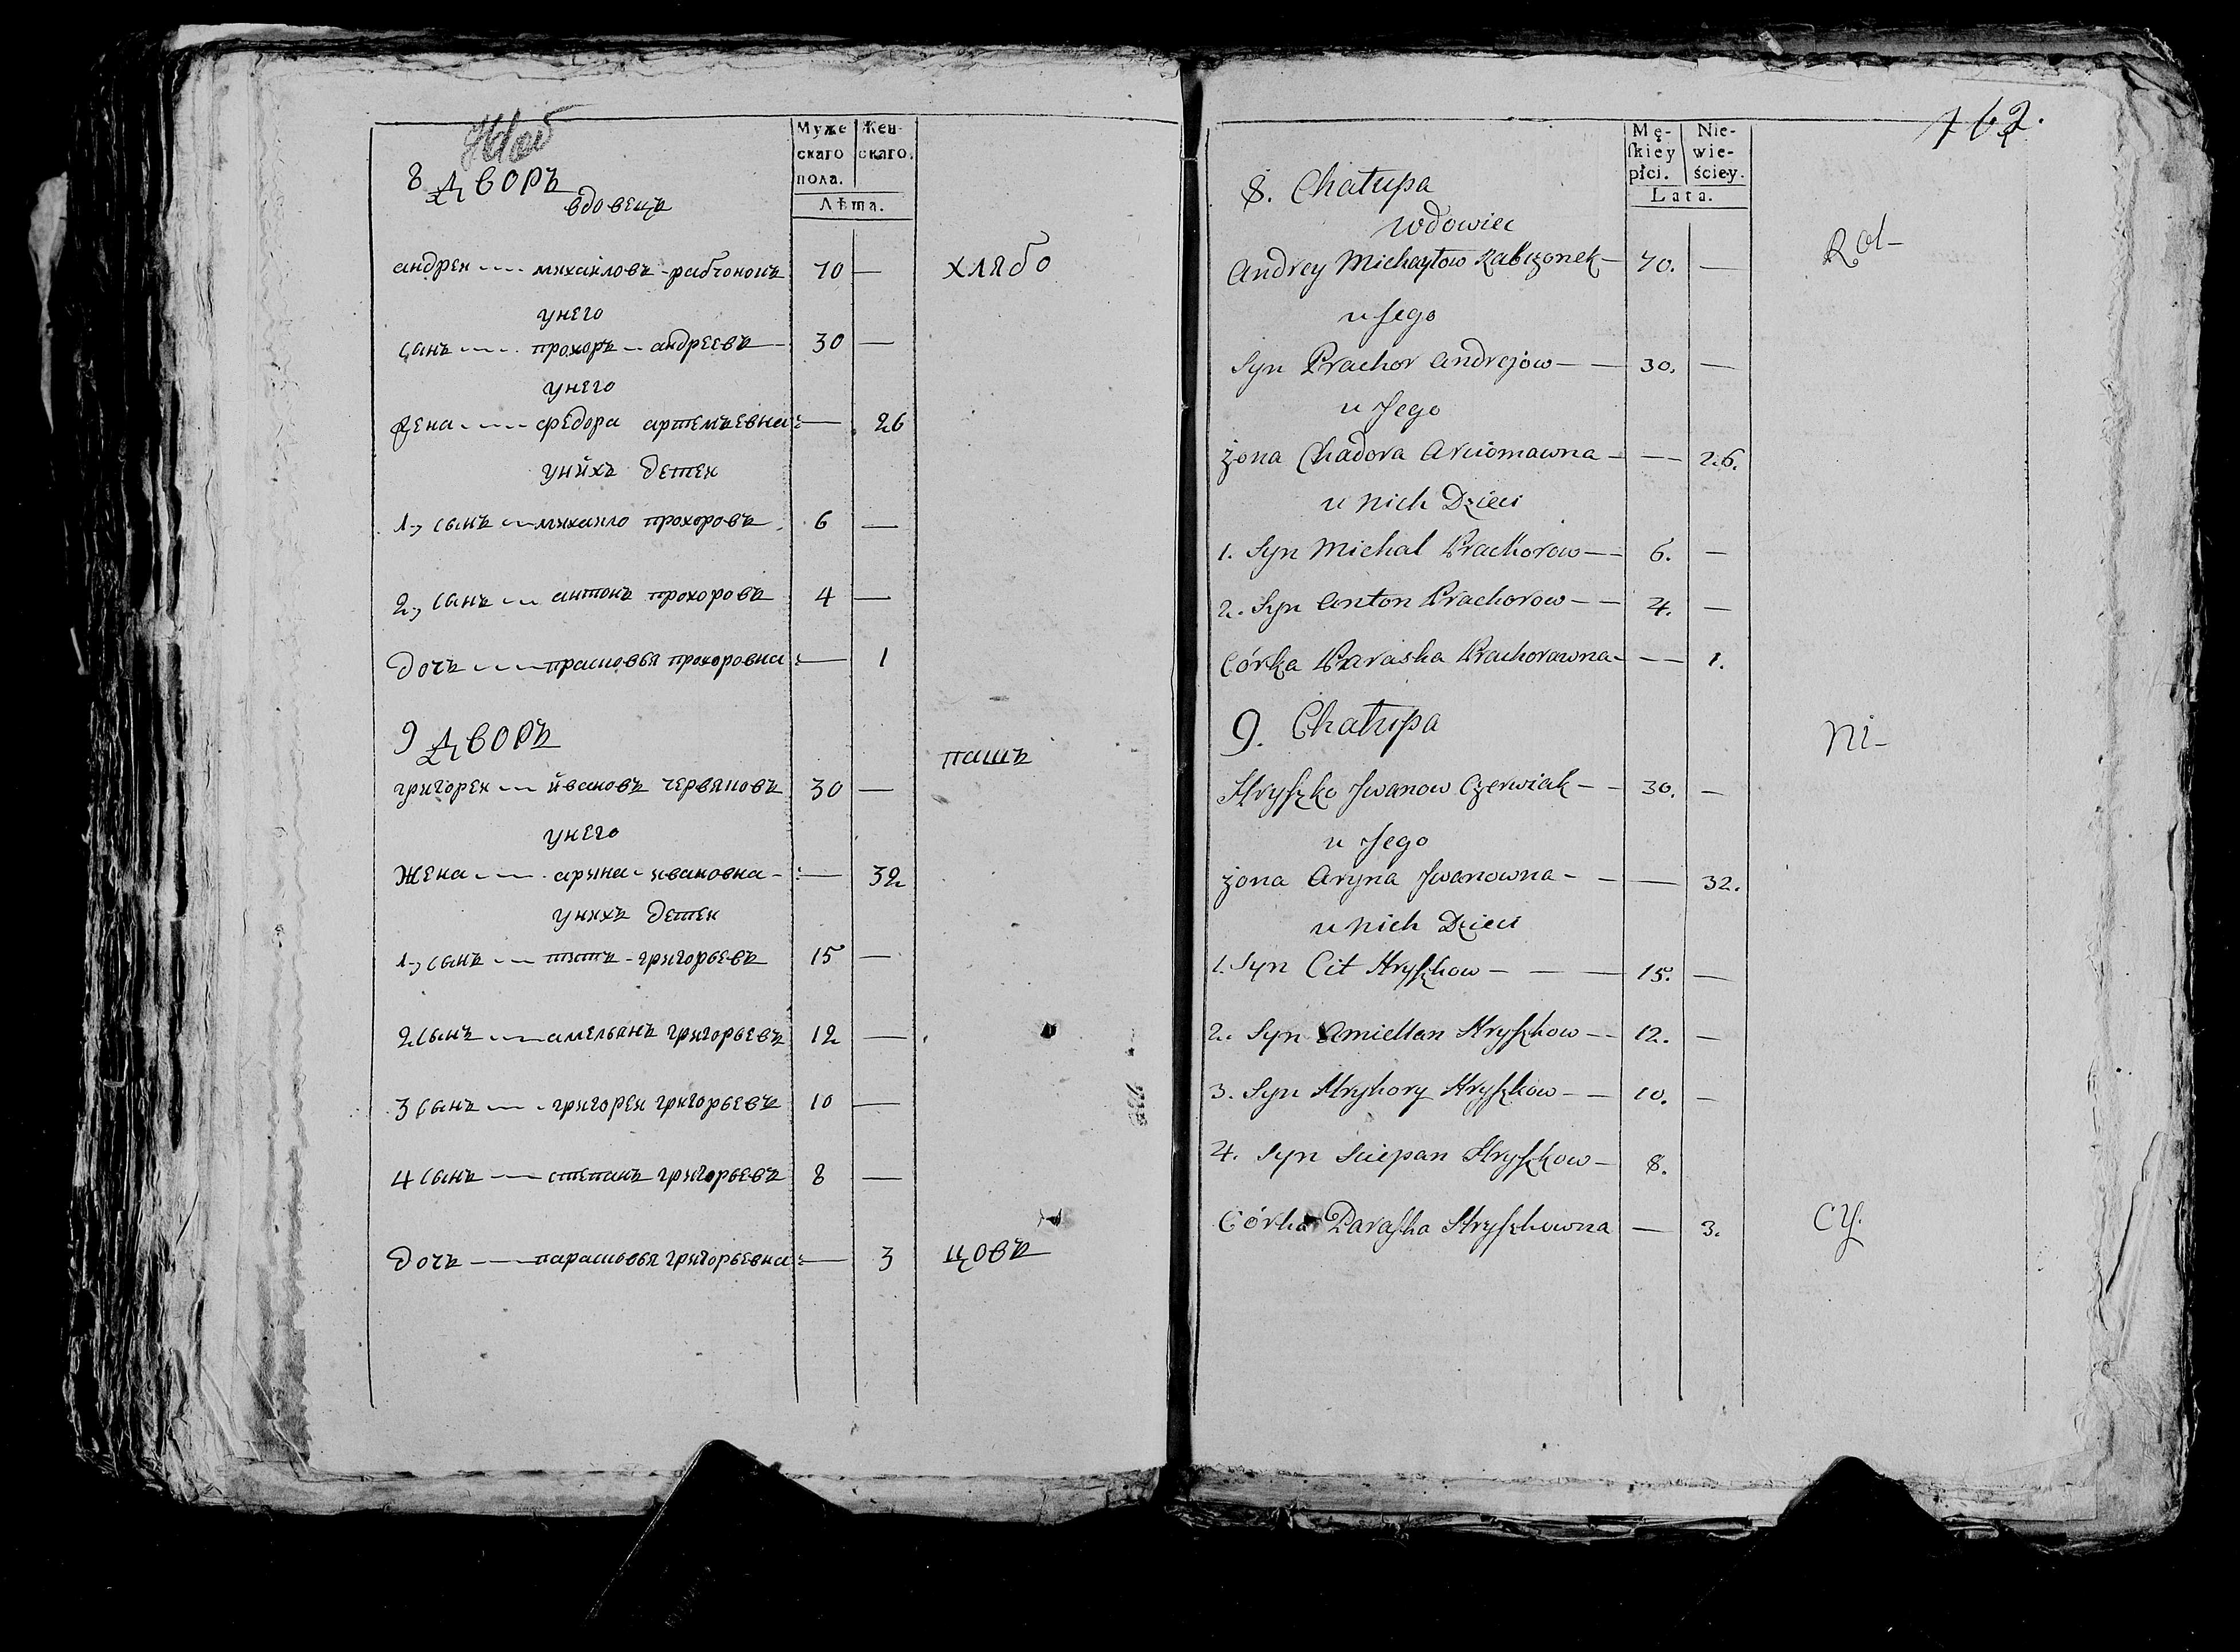 Муже
скаго
пола.
Жен-
скаго.
Лѣта.
8 дворъ
вдовецъ
андреи михаиловъ рабчонокъ 70 — хлябо
унего
сынъ прохоръ андреевъ 30 —
унего
жена федора артемъевна — 26
унйхъ детеи
1, сынъ михаило прохоровъ 6 —
2, сынъ антонъ прохоровъ 4 —
дочъ прасковья прохоровна — 1
9 дворъ
пашъ
григореи йвановъ червяковъ 30 —
унего
жена арина ивановна — 32
унихъ детеи
1, сынъ титъ григорьевъ 15 —
2 сынъ амельянъ григорьевъ 12 —
3 сынъ григореи григорьевъ 10 —
4 сынъ степанъ григорьевъ 8 —
дочъ парасковья григорьевна — 3 цовъ
162.
Mę-
ſkiey
płci.
Nie-
wie-
ściey.
Lata.
8. Chałupa
Wdowiec
Andrey Michayłow Rabczonek — 70. — Rol-
u Jego
Syn Prachor Andrejow — — 30. —
u Jego
żona Chadora Arciomawna — — 26.
u Nich Dzieci
1. Syn Michal Prachorow — — 6. —
2. Syn Anton Prachorow — — 4. —
Córka Paraska Prachorawna — — 1.
9. Chałupa
Ni-
Hryſzko Jwanow Czerwiak — — 30. —
u Jego
żona Aryna Jwanowna — — — 32.
u Nich Dzieci
1. Syn Cit Hryſzkow — — — 15. —
2. Syn Amiellan Hryſzkow — — 12. —
3. Syn Hryhory Hryſzkow — — 10. —
4. Syn Sciepan Hryſzkow — 8.
Córka Paraſka Hryſzkowna — 3. cy.